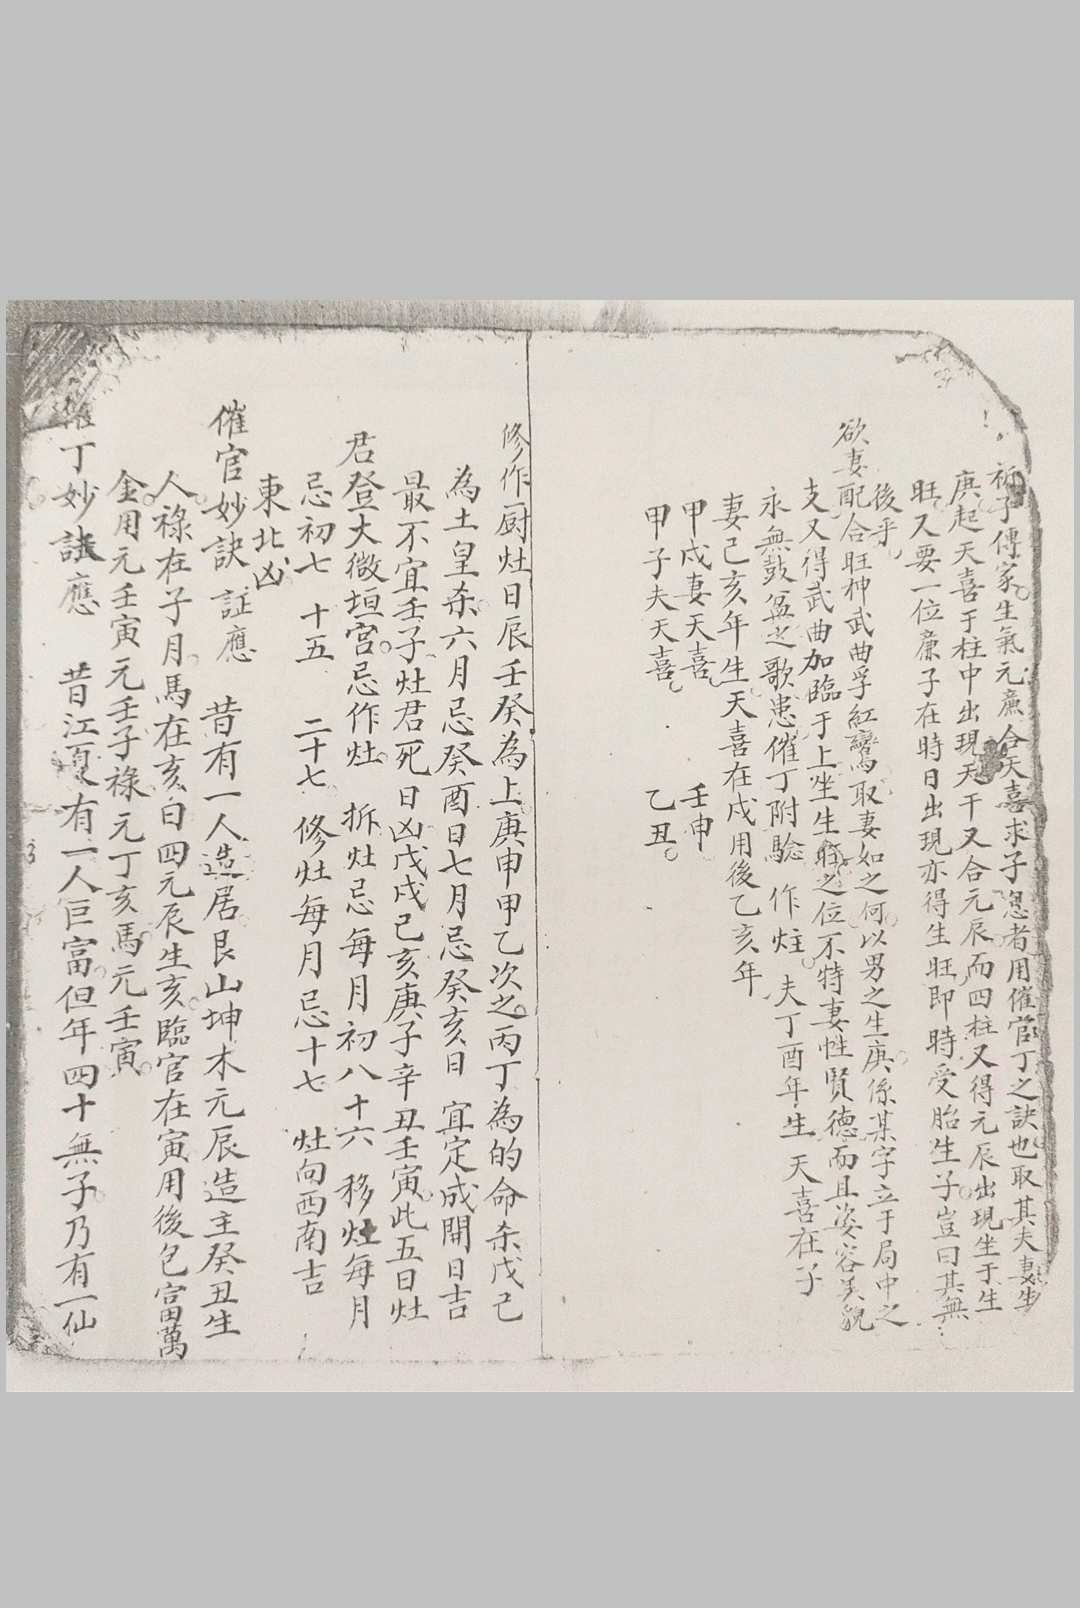 祈子傳家生氣元廉合天喜求子息者用催官丁之訣也取其夫妻生
庚起天喜于柱中出現天干又合元辰而四柱又得元辰出現坐于生
旺又要一位廉子在時日出現亦得生旺即時受胎生子豈曰其無
後乎
欲妻配合旺神武曲孚紅鸞取妻如之何以男之生庚係某字立于局中之
支又得武曲加臨于上坐生旺之位不特妻性賢德而且姿容美貌
永無鼓盆之歌患催丁附驗 作灶 夫丁酉年生 天喜在子
妻己亥年生天喜在戌用後乙亥年
甲戌妻天喜 壬申
甲子夫天喜 乙丑
修作厨灶日辰壬癸為上庚申甲乙次之丙丁為的命杀戊己
為土皇杀六月忌癸酉日七月忌癸亥日 宜定成開日吉
最不宜壬子灶君死日凶戊戌己亥庚子辛丑壬寅此五日灶
君登大微垣宮忌作灶 拆灶忌每月初八十六 移灶每月
忌初七 十五 二十七 修灶每月忌十七 灶向西南吉
東北凶
催官妙訣 証應 昔有一人造居艮山坤木元辰造主癸丑生
人祿在子月馬在亥白四元辰生亥臨官在寅用後包富萬
金用元壬寅元壬子祿元丁亥馬元壬寅
催丁妙訣應 昔江夏有一人巨富但年四十無子乃有一仙